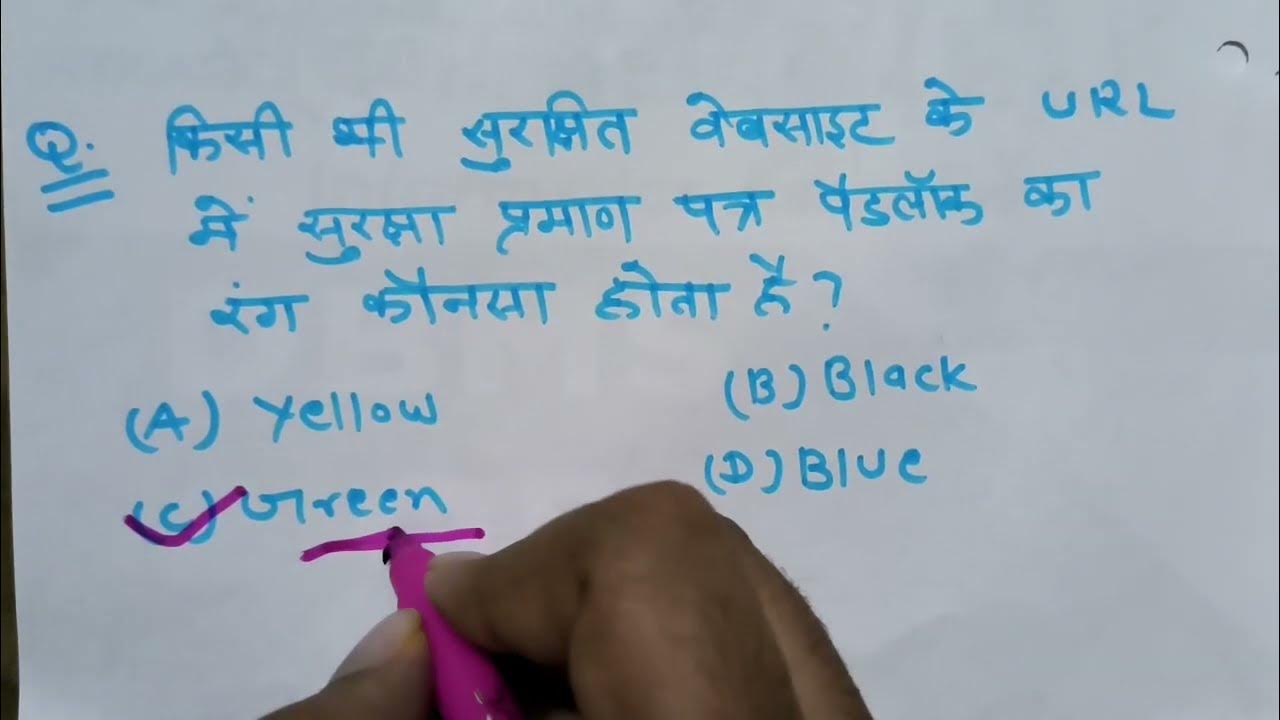 Q. किसी भी सुरक्षित वेबसाइट के URL
में सुरक्षा प्रमाण पत्र पैडलॉक का
रंग कौनसा होता है?
(A) Yellow (B) Black
(C) Green (D) Blue